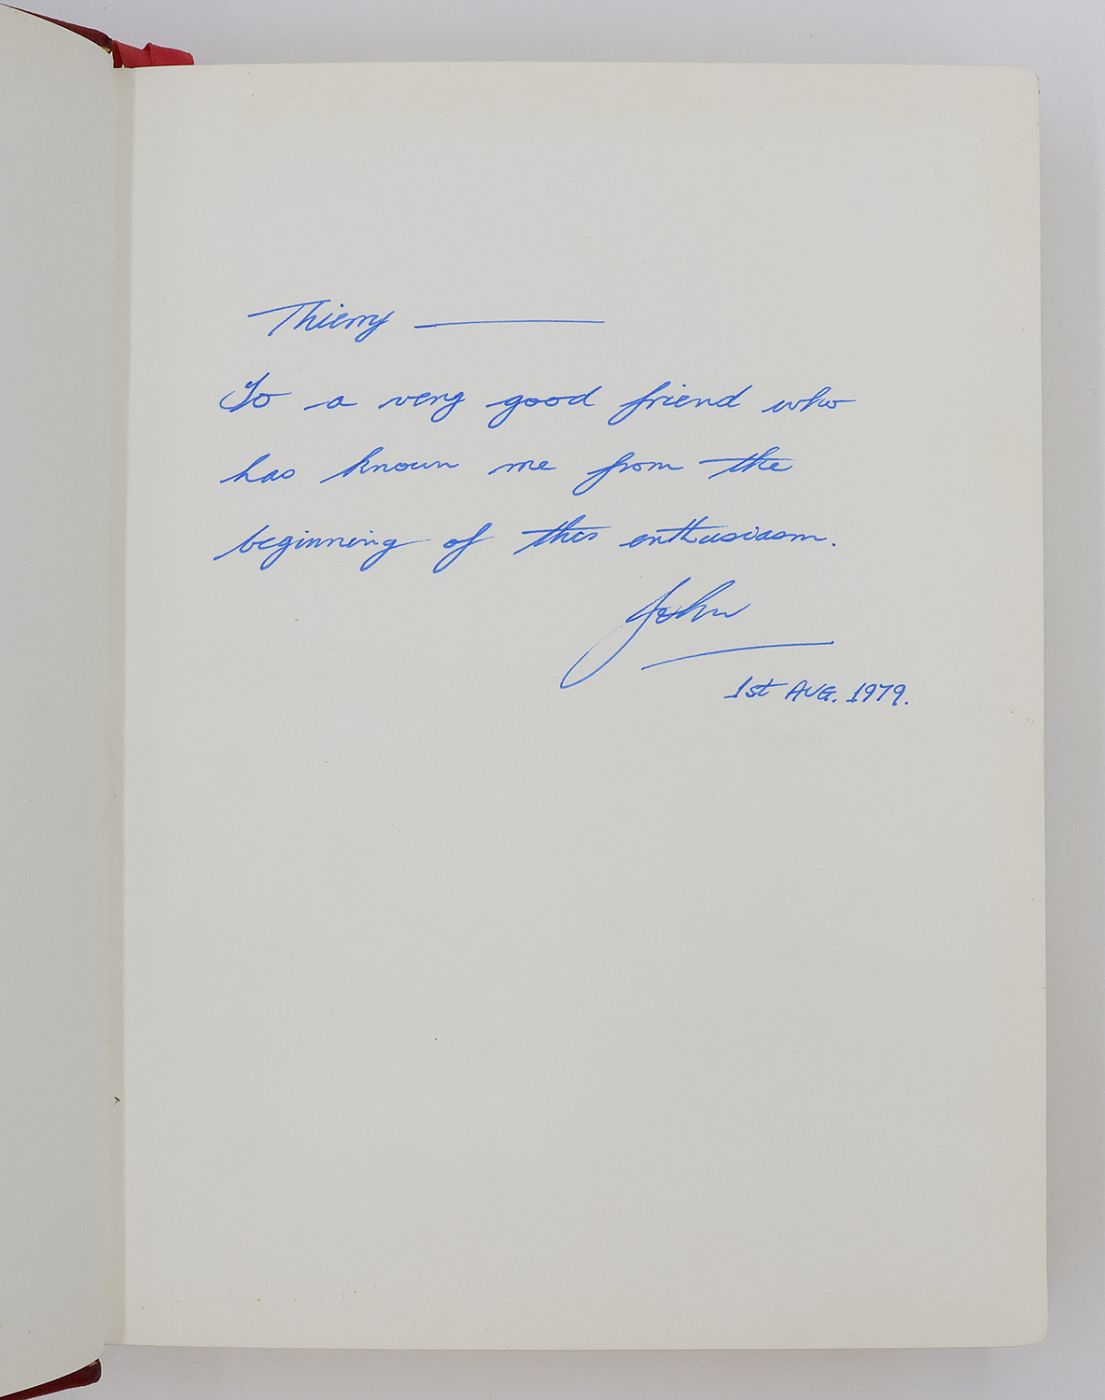 Thierry ———
To a very good friend who
has known me from the
beginning of this enthusiasm.
John
1st AUG. 1979.